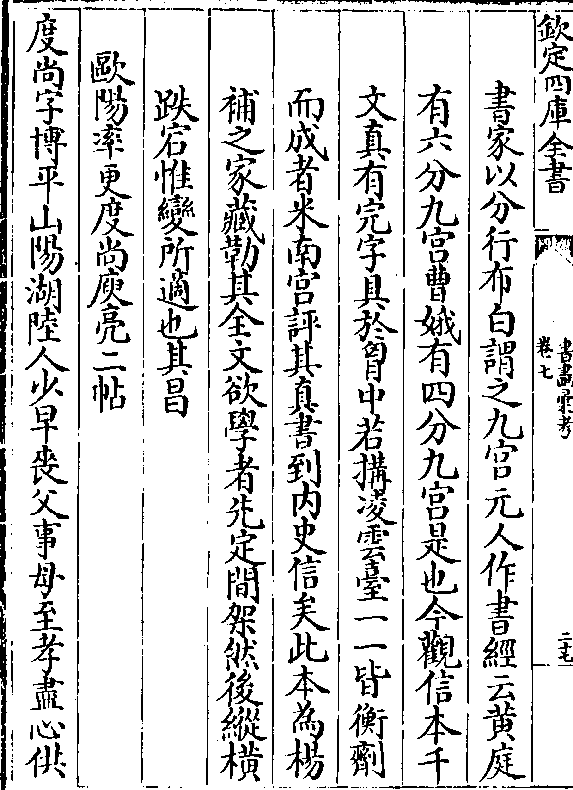 欽定四庫全書
書畫彙考
卷七
二十七
書家以分行布白謂之九宮元人作書經云黄庭
有六分九宮曹娥有四分九宮是也今觀信本千
文真有完字具於胷中若搆凌雲臺一一皆衡劑
而成者米南宮評其真書到内史信矣此本為楊
補之家藏勒其全文欲學者先定間架然後縱横
跌宕惟變所適也其昌
歐陽率更度尚庾亮二帖
度尚字博平山陽湖陸人少早喪父事母至孝盡心供